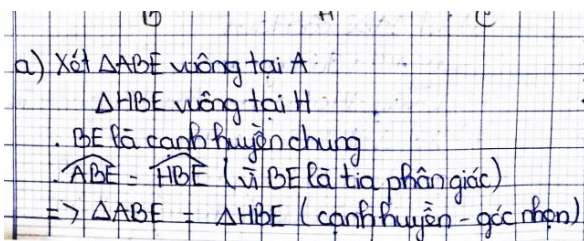 B H C
a) Xét ΔABE vuông tại A
ΔHBE vuông tại H
. BE là cạnh huyền chung
. ABE = HBE (vì BE là tia phân giác)
=> ΔABE = ΔHBE (cạnh huyền - góc nhọn)